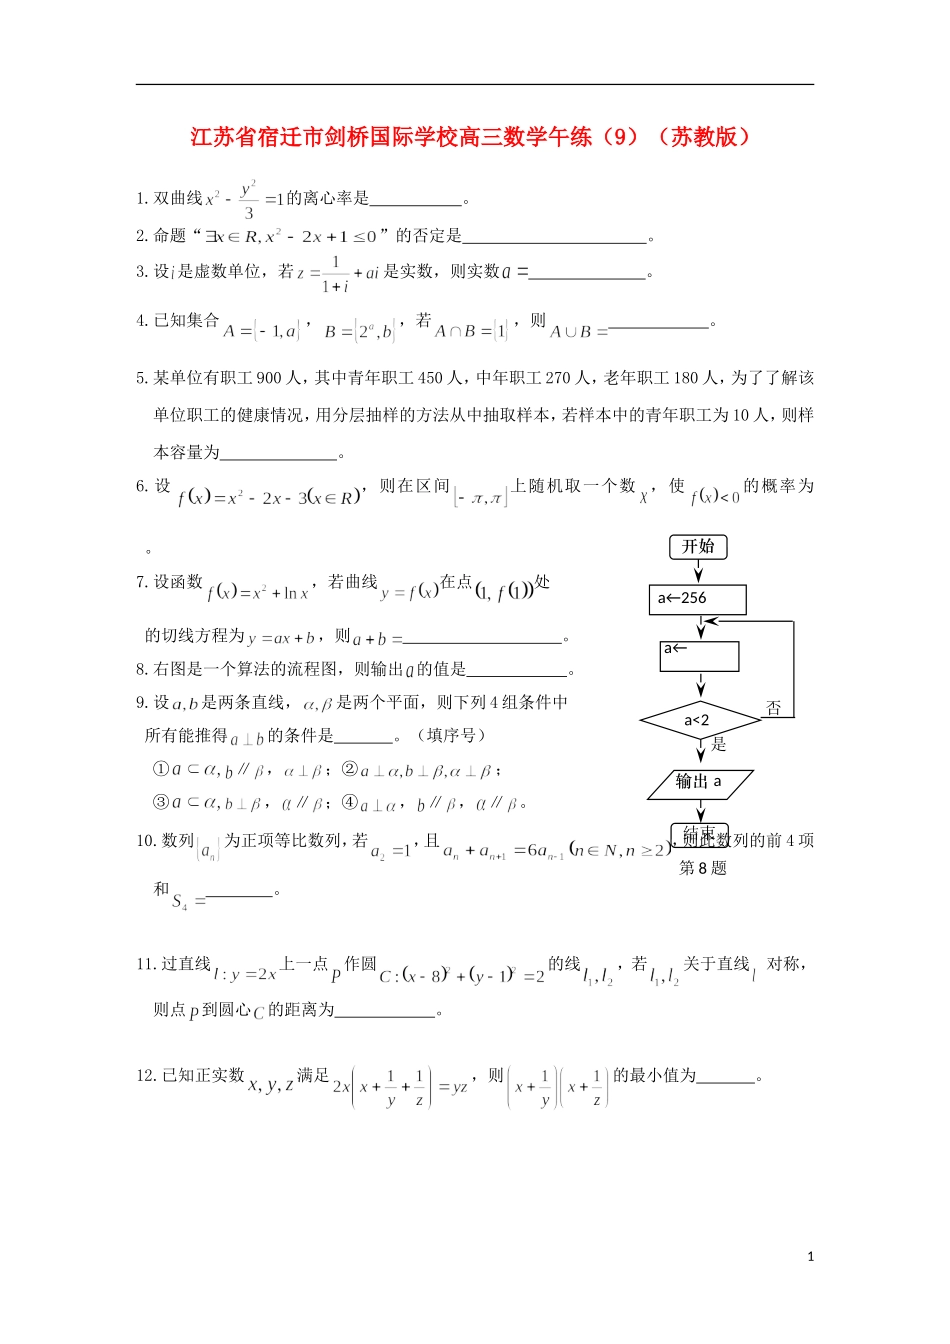 江苏省宿迁市剑桥国际学校高三数学午练（9）（苏教版）
1.双曲线x²-y²/3=1的离心率是________。
2.命题“∃x∈R,x²-2x+1≤0”的否定是________。
3.设i是虚数单位，若z=1/(1+i)+ai是实数，则实数a=________。
4.已知集合A={-1,a}，B={2^a,b}，若A∩B={1}，则A∪B=________。
5.某单位有职工900人，其中青年职工450人，中年职工270人，老年职工180人，为了了解该
单位职工的健康情况，用分层抽样的方法从中抽取样本，若样本中的青年职工为10人，则样
本容量为________。
6.设f(x)=x²-2x-3(x∈R)，则在区间[-π,π]上随机取一个数x，使f(x)<0的概率为
。
7.设函数f(x)=x²+lnx，若曲线y=f(x)在点(1,f(1))处
的切线方程为y=ax+b，则a+b=________。
8.右图是一个算法的流程图，则输出a的值是________。
9.设a,b是两条直线，α,β是两个平面，则下列4组条件中
所有能推得a⊥b的条件是______。（填序号）
①a⊂α,b∥β，α⊥β；②a⊥α,b⊥β,α⊥β；
③a⊂α,b⊥β，α∥β；④a⊥α，b∥β，α∥β。
开始
a←256
a←
a<2
否
是
输出 a
结束
第 8 题
10.数列{aₙ}为正项等比数列，若a₂=1，且aₙ+aₙ₊₁=6aₙ₋₁(n∈N,n≥2)，则此数列的前4项
和S₄=________。
11.过直线l:y=2x上一点P作圆C:(x-8)²+(y-1)²=2的线l₁,l₂，若l₁,l₂关于直线l 对称，
则点P到圆心C的距离为________。
12.已知正实数x,y,z满足2x(x+1/y+1/z)=yz，则(x+1/y)(x+1/z)的最小值为______。
1